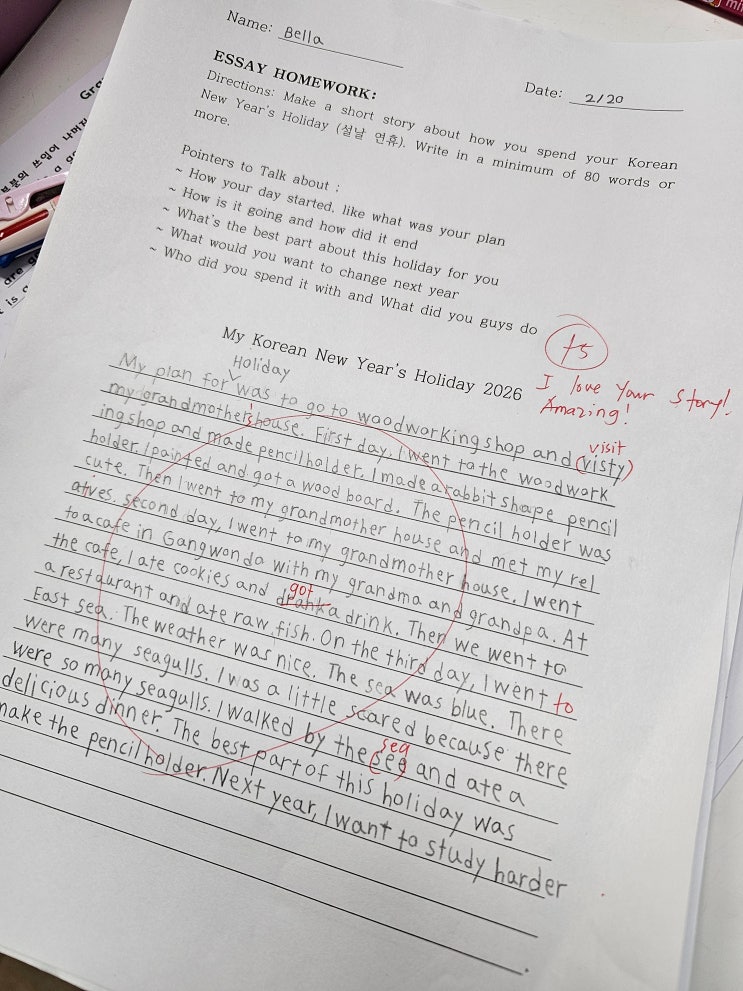 Name: Bella
Date: 2/20
ESSAY HOMEWORK:
Directions: Make a short story about how you spend your Korean
New Year's Holiday (설날 연휴). Write in a minimum of 80 words or
more.
Pointers to Talk about ;
~ How your day started, like what was your plan
~ How is it going and how did it end
~ What's the best part about this holiday for you
~ What would you want to change next year
~ Who did you spend it with and What did you guys do
+5
I love your story!
Amazing!
My Korean New Year's Holiday 2026
Holiday
My plan for was to go to woodworking shop and (visty)
visit
my grandmother's house. First day, I went to the woodwork
ing shop and made pencil holder. I made a rabbit shape pencil
holder. I painted and got a wood board. The pencil holder was
cute. Then I went to my grandmother house and met my rel
atives. second day, I went to my grandmother house. I went
to a cafe in Gangwondo with my grandma and grandpa. At
the cafe, I ate cookies and drank a drink. Then we went to
got
a restaurant and ate raw fish. On the third day, I went to
East sea. The weather was nice. The sea was blue. There
were many seagulls. I was a little scared because there
were so many seagulls. I walked by the (see) and ate a
sea
delicious dinner. The best part of this holiday was
make the pencil holder. Next year, I want to study harder
.
Gra